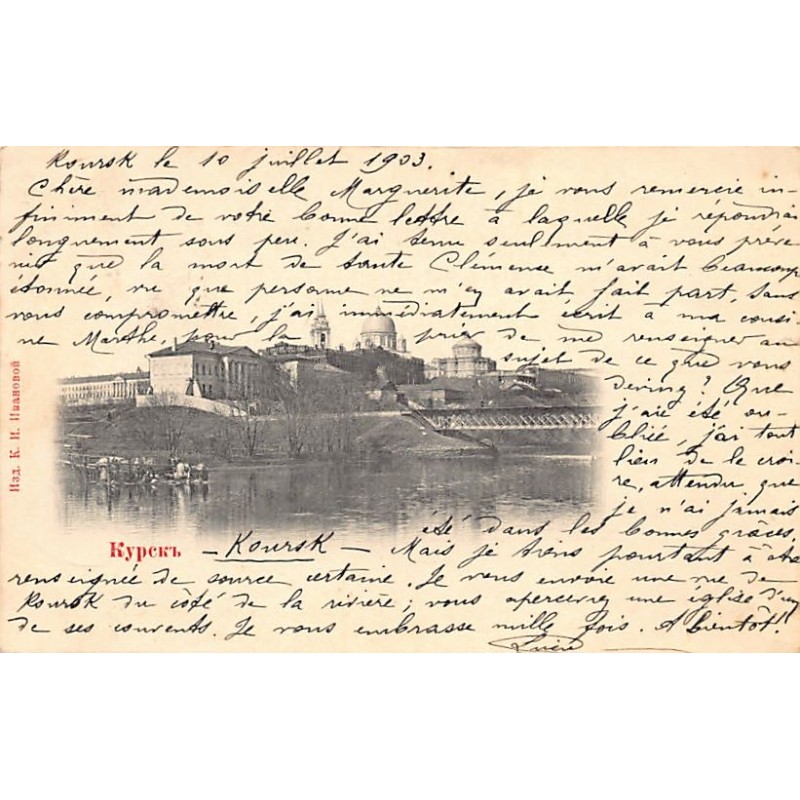 Koursk le 10 juillet 1903.
Chère mademoiselle Marguerite, je vous remercie in-
finiment de votre bonne lettre à laquelle je répondrai
longuement sous peu. J'ai tenu seulement à vous préve
nir que la mort de tante Clémense m'avait beaucoup
étonnée, vu que personne ne m'en avait fait part, sans
vous compromettre, j'ai immédiatement écrit à ma cousi-
ne Marthe, pour la prier de me renseigner au
sujet de ce que vous
deviez? Que
j'aie été ou-
bliée, j'ai tout
lieu de le croi-
re, attendu que
je n'ai jamais
été dans les bonnes grâces.
Mais je tiens pourtant à être
renseignée de source certaine. Je vous envoie une vue de
Koursk du côté de la rivière; vous apercevez une église d'un
de ses couvents. Je vous embrasse mille fois. A bientôt!
Изд. К. И. Ивановой
Курскъ - Koursk -